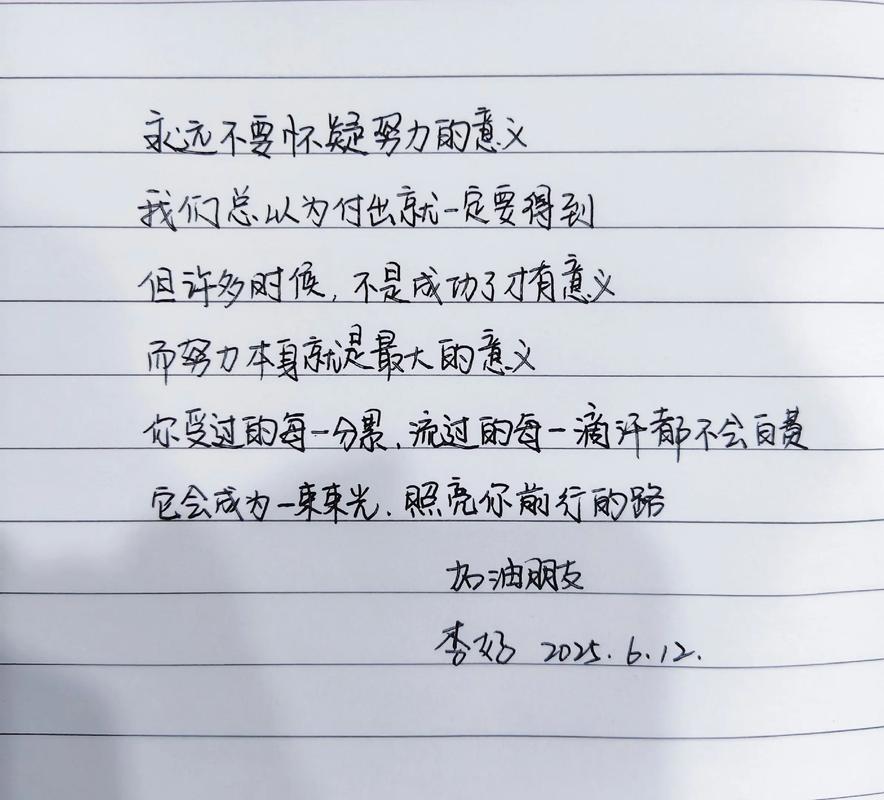 永远不要怀疑努力的意义
我们总以为付出就一定要得到
但许多时候，不是成功了才有意义
而努力本身就是最大的意义
你受过的每一分累，流过的每一滴汗都不会白费
它会成为一束束光，照亮你前行的路
加油朋友
李好 2025.6.12.